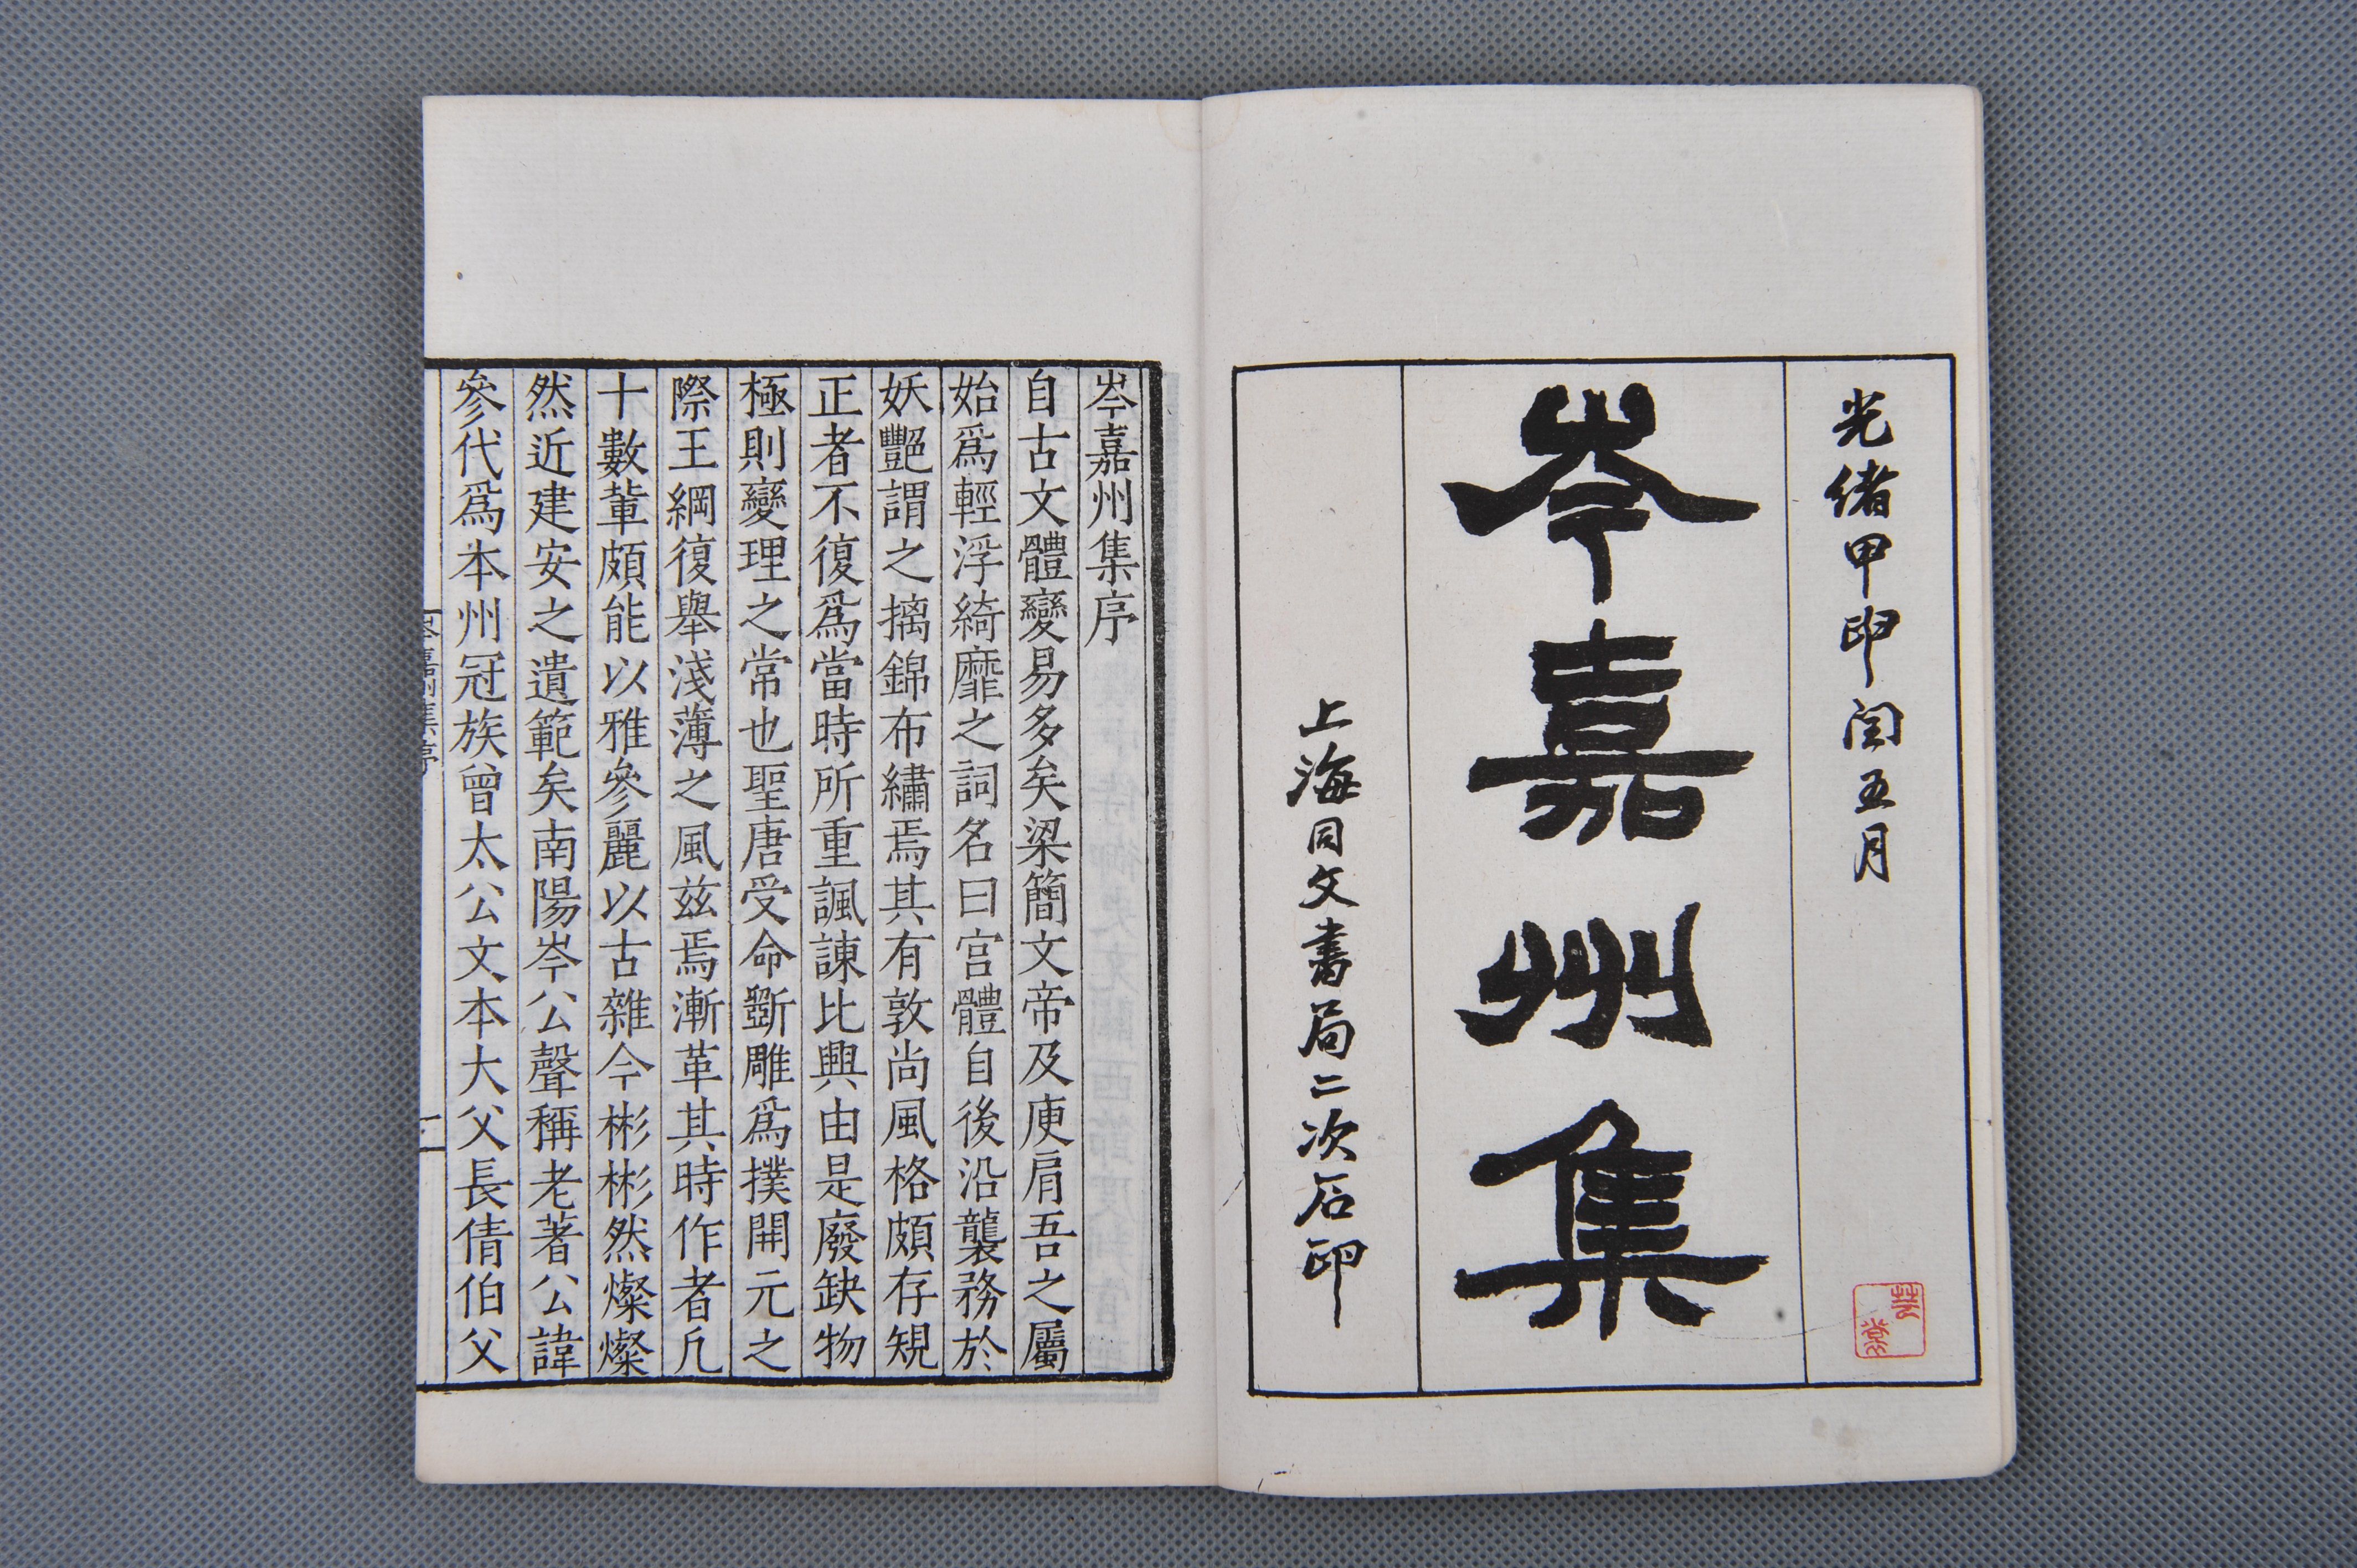 光緒甲申閏五月
岑嘉州集
上海同文書局二次石印
岑嘉州集序
自古文體變易多矣梁簡文帝及庾肩吾之屬
始爲輕浮綺靡之詞名曰宮體自後沿襲務於
妖豔謂之摛錦布繡焉其有敦尚風格頗存規
正者不復爲當時所重諷諫比興由是廢缺物
極則變理之常也聖唐受命斲雕爲撲開元之
際王綱復舉淺薄之風茲焉漸革其時作者凡
十數輩頗能以雅參麗以古雜今彬彬然燦燦
然近建安之遺範矣南陽岑公聲稱老著公諱
參代爲本州冠族曾太公文本大父長倩伯父
岑嘉州集序
一